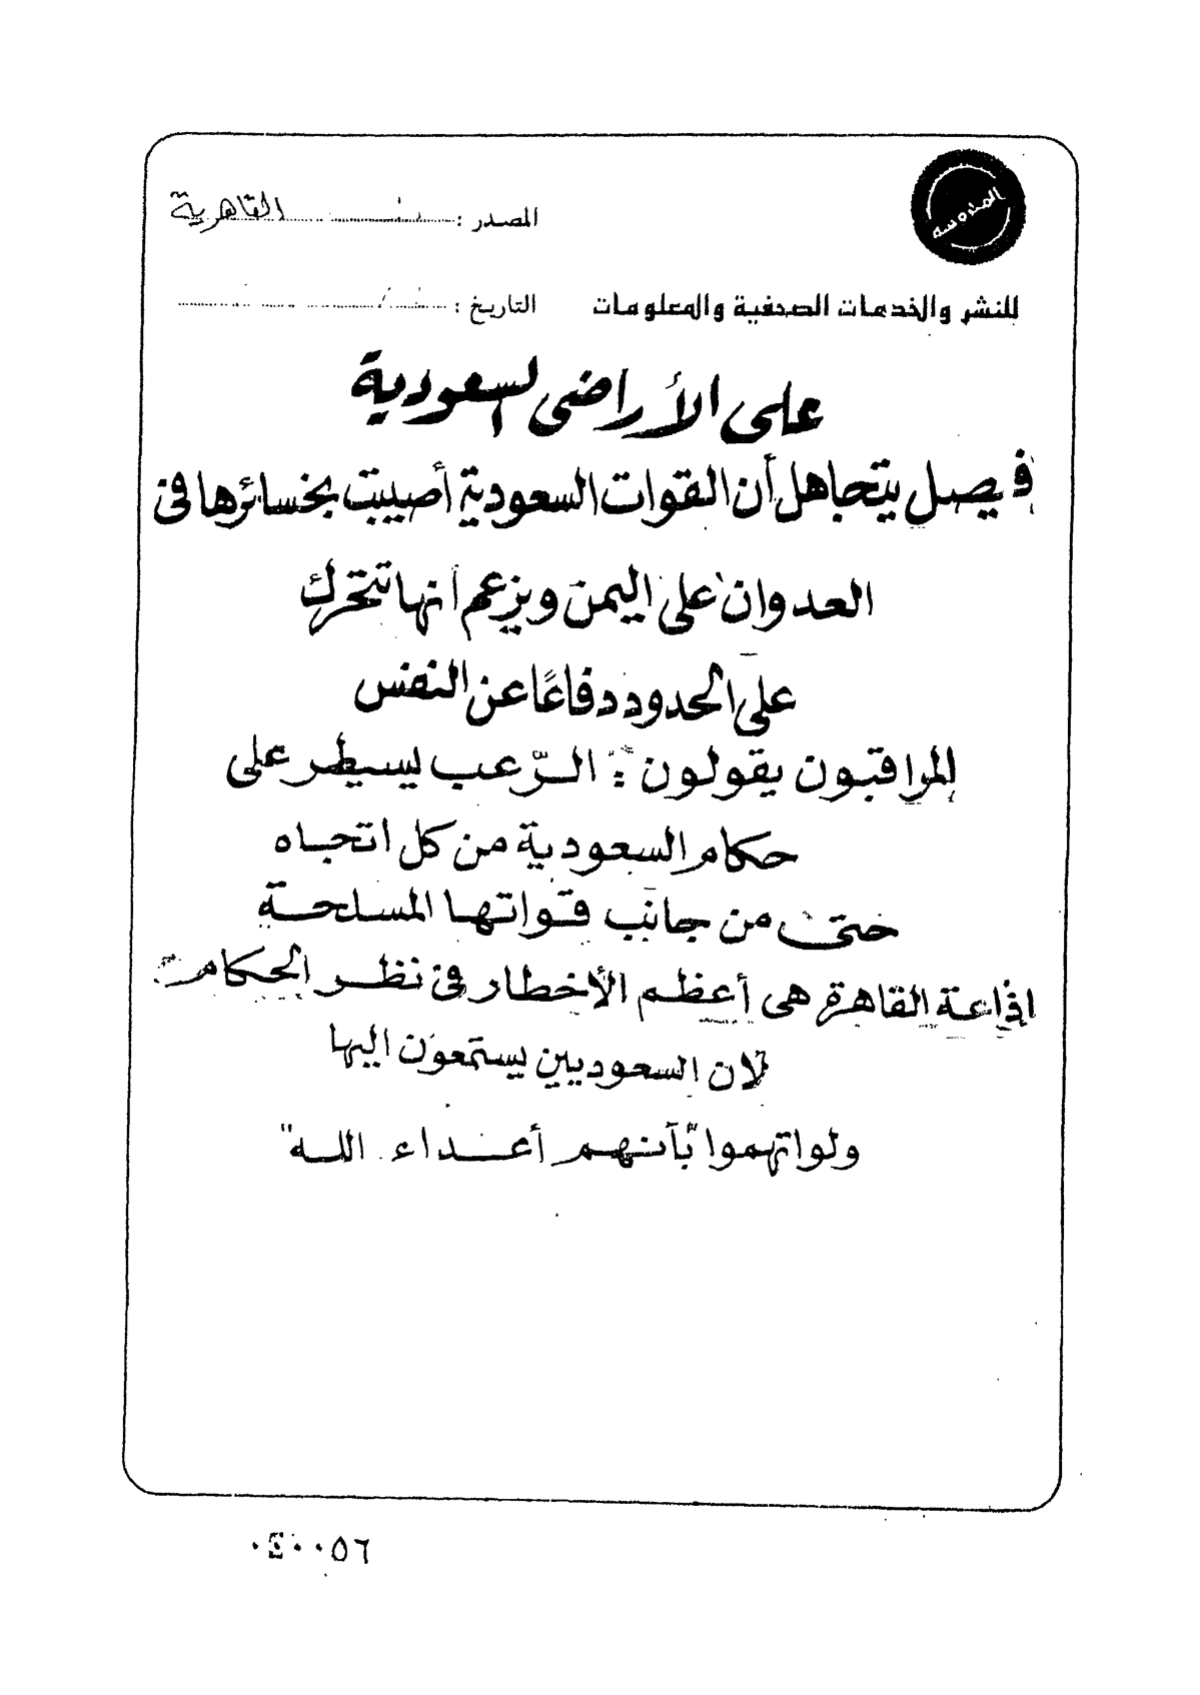 المدروسه
المصدر : القاهرية
للنشر والخدمات الصحفية والمعلومات
التاريخ :
على الأراضى السعودية
فيصل يتجاهل أن القوات السعودية أصيبت بخسائرها فى
العدوان على اليمن ويزعم أنها تتحرك
على الحدود دفاعًا عن النفس
المراقبون يقولون : الرّعب يسيطر على
حكام السعودية من كل اتجاه
حتى من جانب قواتها المسلحة
اذاعة القاهرة هى أعظم الأخطار فى نظر الحكام
لان السعوديين يستمعون اليها
ولو اتهموا بأنهم أعداء الله"